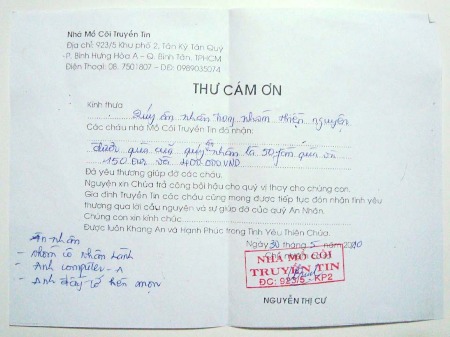 Nhà Mồ Côi Truyền Tin
Địa chỉ: 923/5 Khu phố 2, Tân Kỳ Tân Quý
- P. Bình Hưng Hòa A - Q. Bình Tân, TPHCM
Điện Thoại: 08. 7501807 - DĐ: 0989035074
THƯ CÁM ƠN
Kính thưa
Quý ân nhân trong nhóm thiện nguyện
Các cháu nhà Mồ Côi Truyền Tin đã nhận:
được quà của quý ân nhân là 50 phần quà và
150 Eur và 400.000 VND
Đã yêu thương giúp đỡ các cháu.
Nguyện xin Chúa trả công bội hậu cho quý vị thay cho chúng con.
Gia đình Truyền Tin các cháu cũng mong được tiếp tục đón nhận tình yêu
thương qua lời cầu nguyện và sự giúp đỡ của quý Ân Nhân.
Chúng con kính chúc
Được luôn Khang An và Hạnh Phúc trong Tình Yêu Thiên Chúa.
Ngày 30 tháng 5 năm 2010
Ân nhân
- Nhóm cô nhân hành
- Anh computer - A
- Anh đầy tớ hèn mọn
NHÀ MỒ CÔI
TRUYỀN TIN
ĐC: 923/5 - KP2
NGUYỄN THỊ CƯ